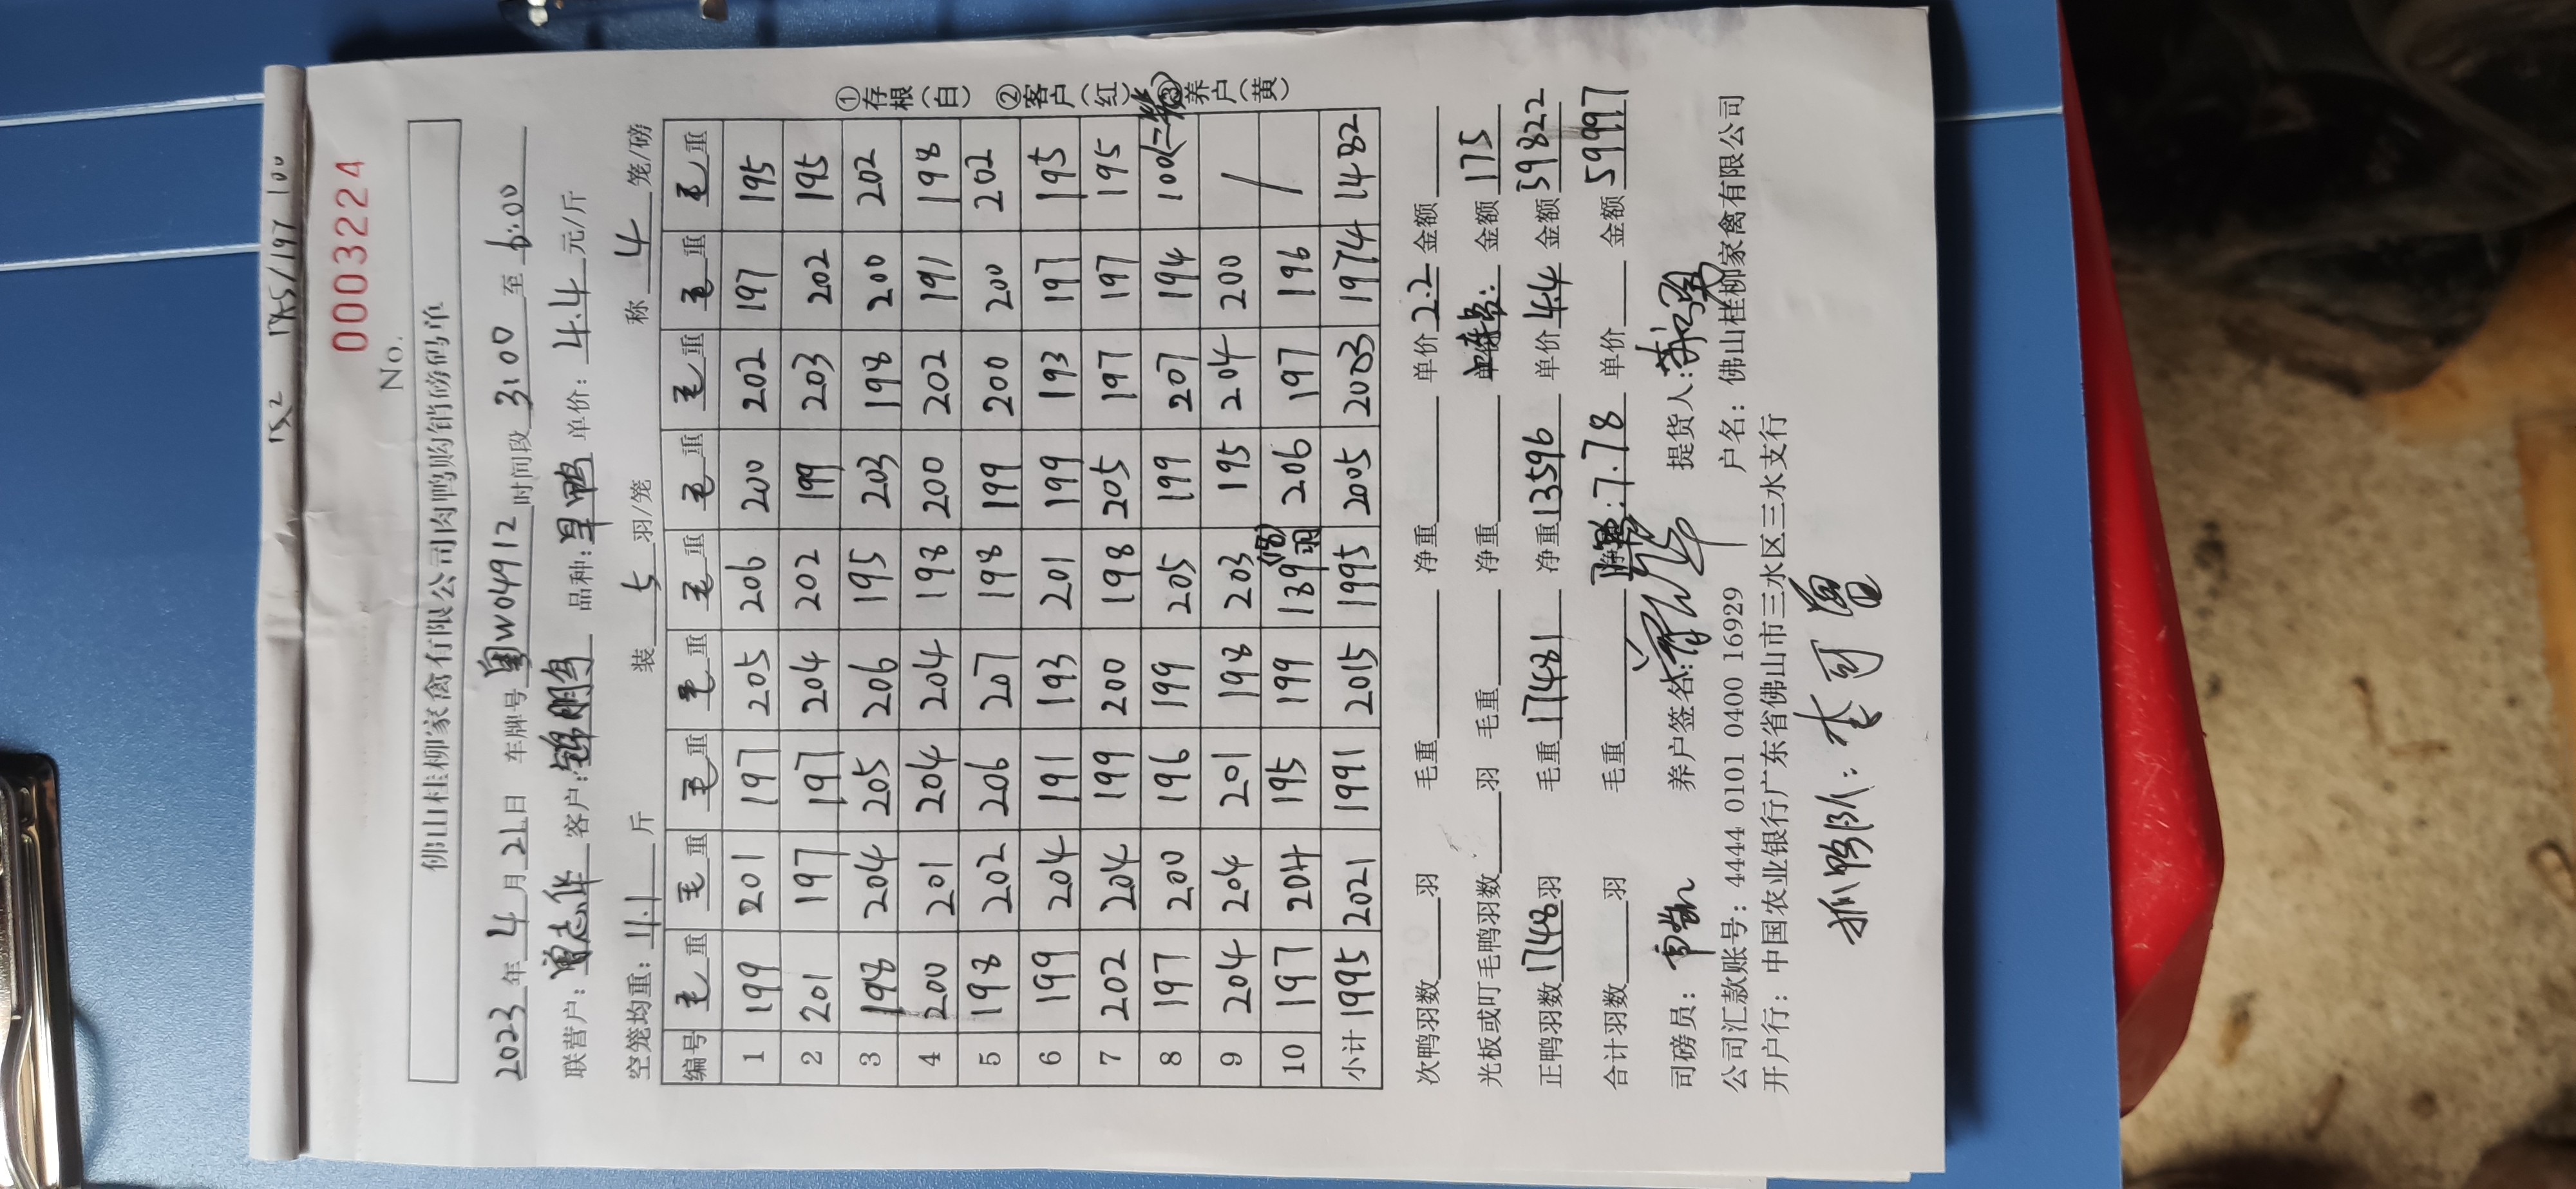 152 195/197 100
No. 0003224
佛山桂柳家禽有限公司肉鸭购销磅码单
2023年4月21日 车牌号粤W04912时间段3:00至6:00
联营户:曾志华 客户:锦鹏 品种: 单价:4.4元/斤
空笼均重:11.1斤 装5羽/笼 称4笼/磅
编号 毛重 毛重 毛重 毛重 毛重 毛重 毛重 毛重 毛重
1 199 201 197 205 206 200 202 197 195
2 201 197 197 204 202 199 203 202 195
3 198 204 205 206 195 203 198 200 202
4 200 201 204 204 198 200 202 191 198
5 198 202 206 207 198 199 200 200 202
6 199 204 191 193 201 199 193 197 195
7 202 204 199 200 198 205 197 197 195
8 197 200 196 199 205 199 207 194 100(二笼)
9 204 204 201 198 203 195 204 200 /
10 197 204 195 199 189(18)羽 206 197 196 /
小计 1995 2021 1991 2015 1995 2005 2003 1974 1482
①存根(白) ②客户(红) ③养户(黄)
次鸭羽数 羽 毛重 净重 单价2.2 金额
光板或叮毛鸭羽数 羽 毛重 净重 金额175
正鸭羽数1748羽 毛重17481 净重13596 单价4.4 金额59822
合计羽数 羽 毛重 :7.78 单价 金额59997
司磅员: 养户签名: 提货人:
公司汇款账号:4444 0101 0400 16929 户名:佛山桂柳家禽有限公司
开户行:中国农业银行广东省佛山市三水区三水支行
抓鸭队:李司